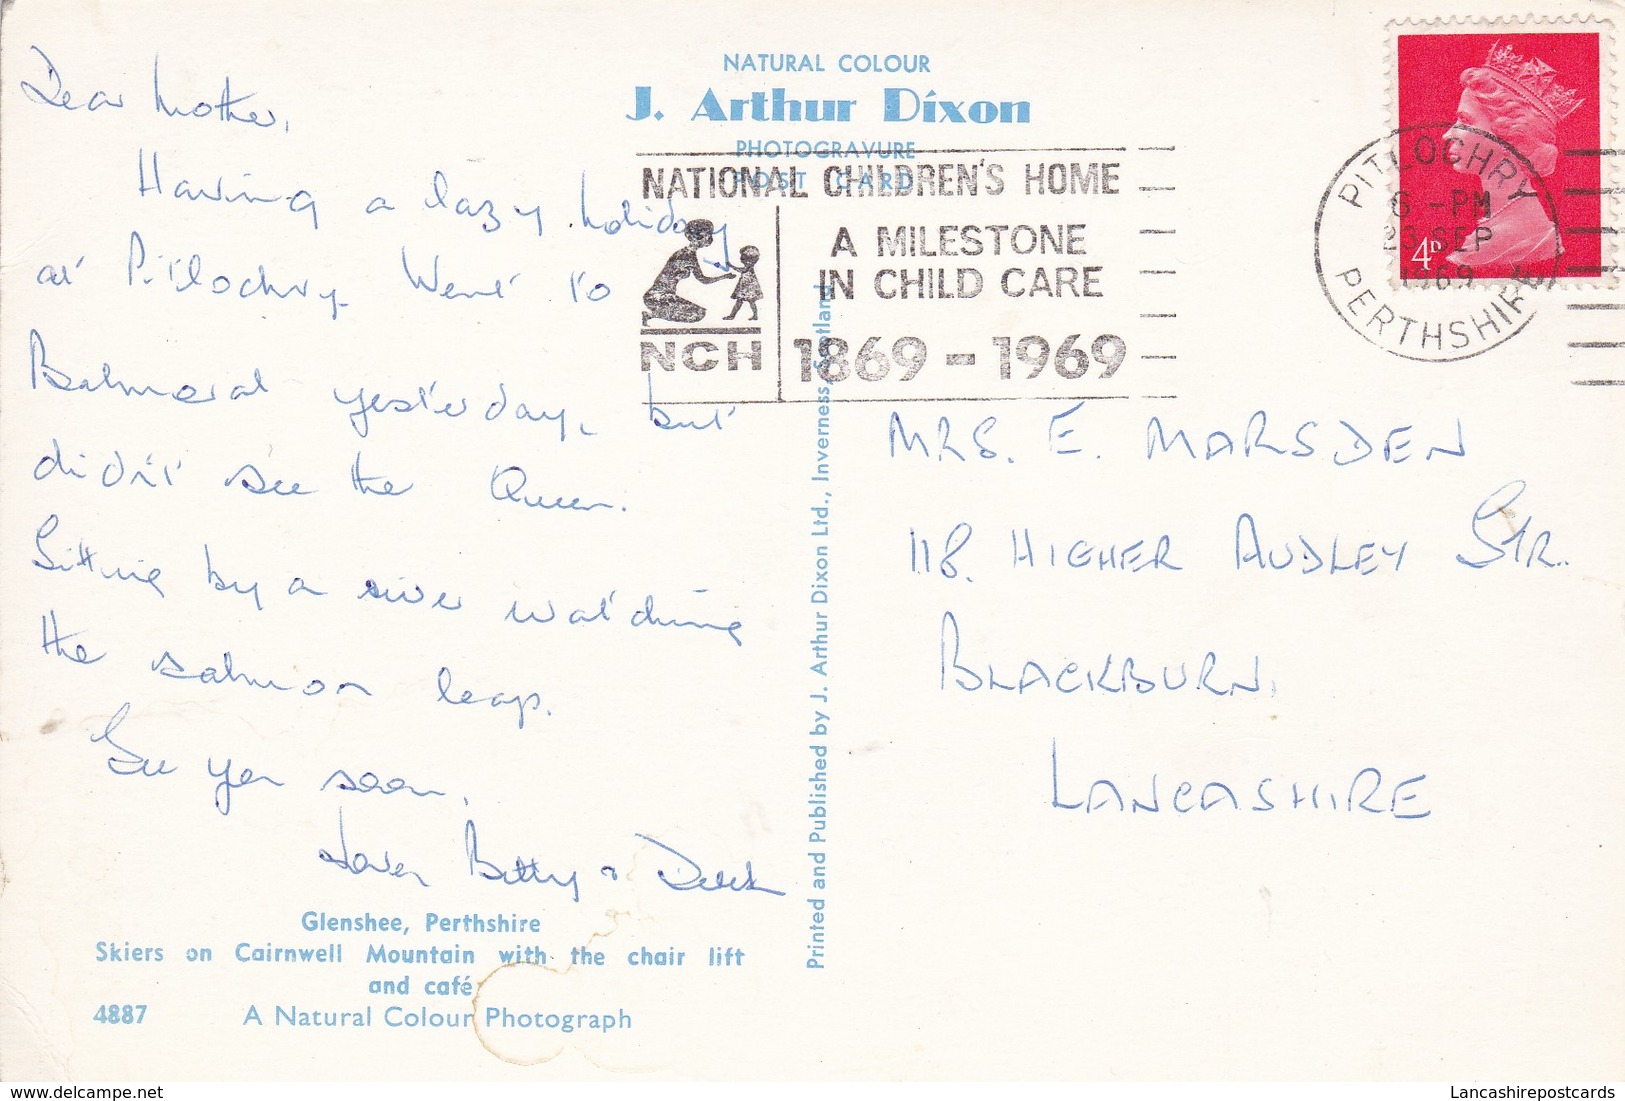 NATURAL COLOUR
J. Arthur Dixon
PHOTOGRAVURE
POST CARD
NATIONAL CHILDREN'S HOME
A MILESTONE
IN CHILD CARE
NCH
1869-1969
PITLOCHRY
6 - PM
23 SEP
1969
PERTHSHIRE
4D
Dear Mother,
Having a lazy holiday
at Pitlochry. Went to
Balmoral yesterday, but
didn't see the Queen.
Sitting by a river watching
the salmon leap.
See you soon,
Love Betty & Derek
MRS. E. MARSDEN
118. HIGHER AUDLEY STR.
BLACKBURN,
LANCASHIRE
Printed and Published by J. Arthur Dixon Ltd., Inverness, Scotland
Glenshee, Perthshire
Skiers on Cairnwell Mountain with the chair lift
and café
4887 A Natural Colour Photograph
delcampe.net
Lancashirepostcards